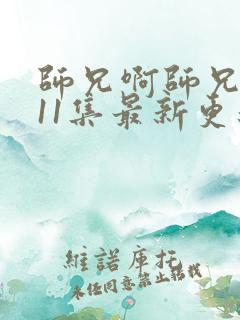 師兄啊師兄
11集最新更
維諾庫托
未任同意禁止转载